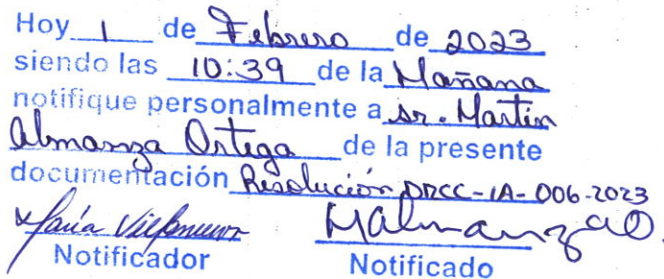 Hoy 1 de Febrero de 2023
siendo las 10:39 de la Mañana
notifique personalmente a sr. Martin
Almanza Ortega de la presente
documentación Resolución DRCC-IA-006-2023
María Villanueva MAlmanzaO.
Notificador Notificado